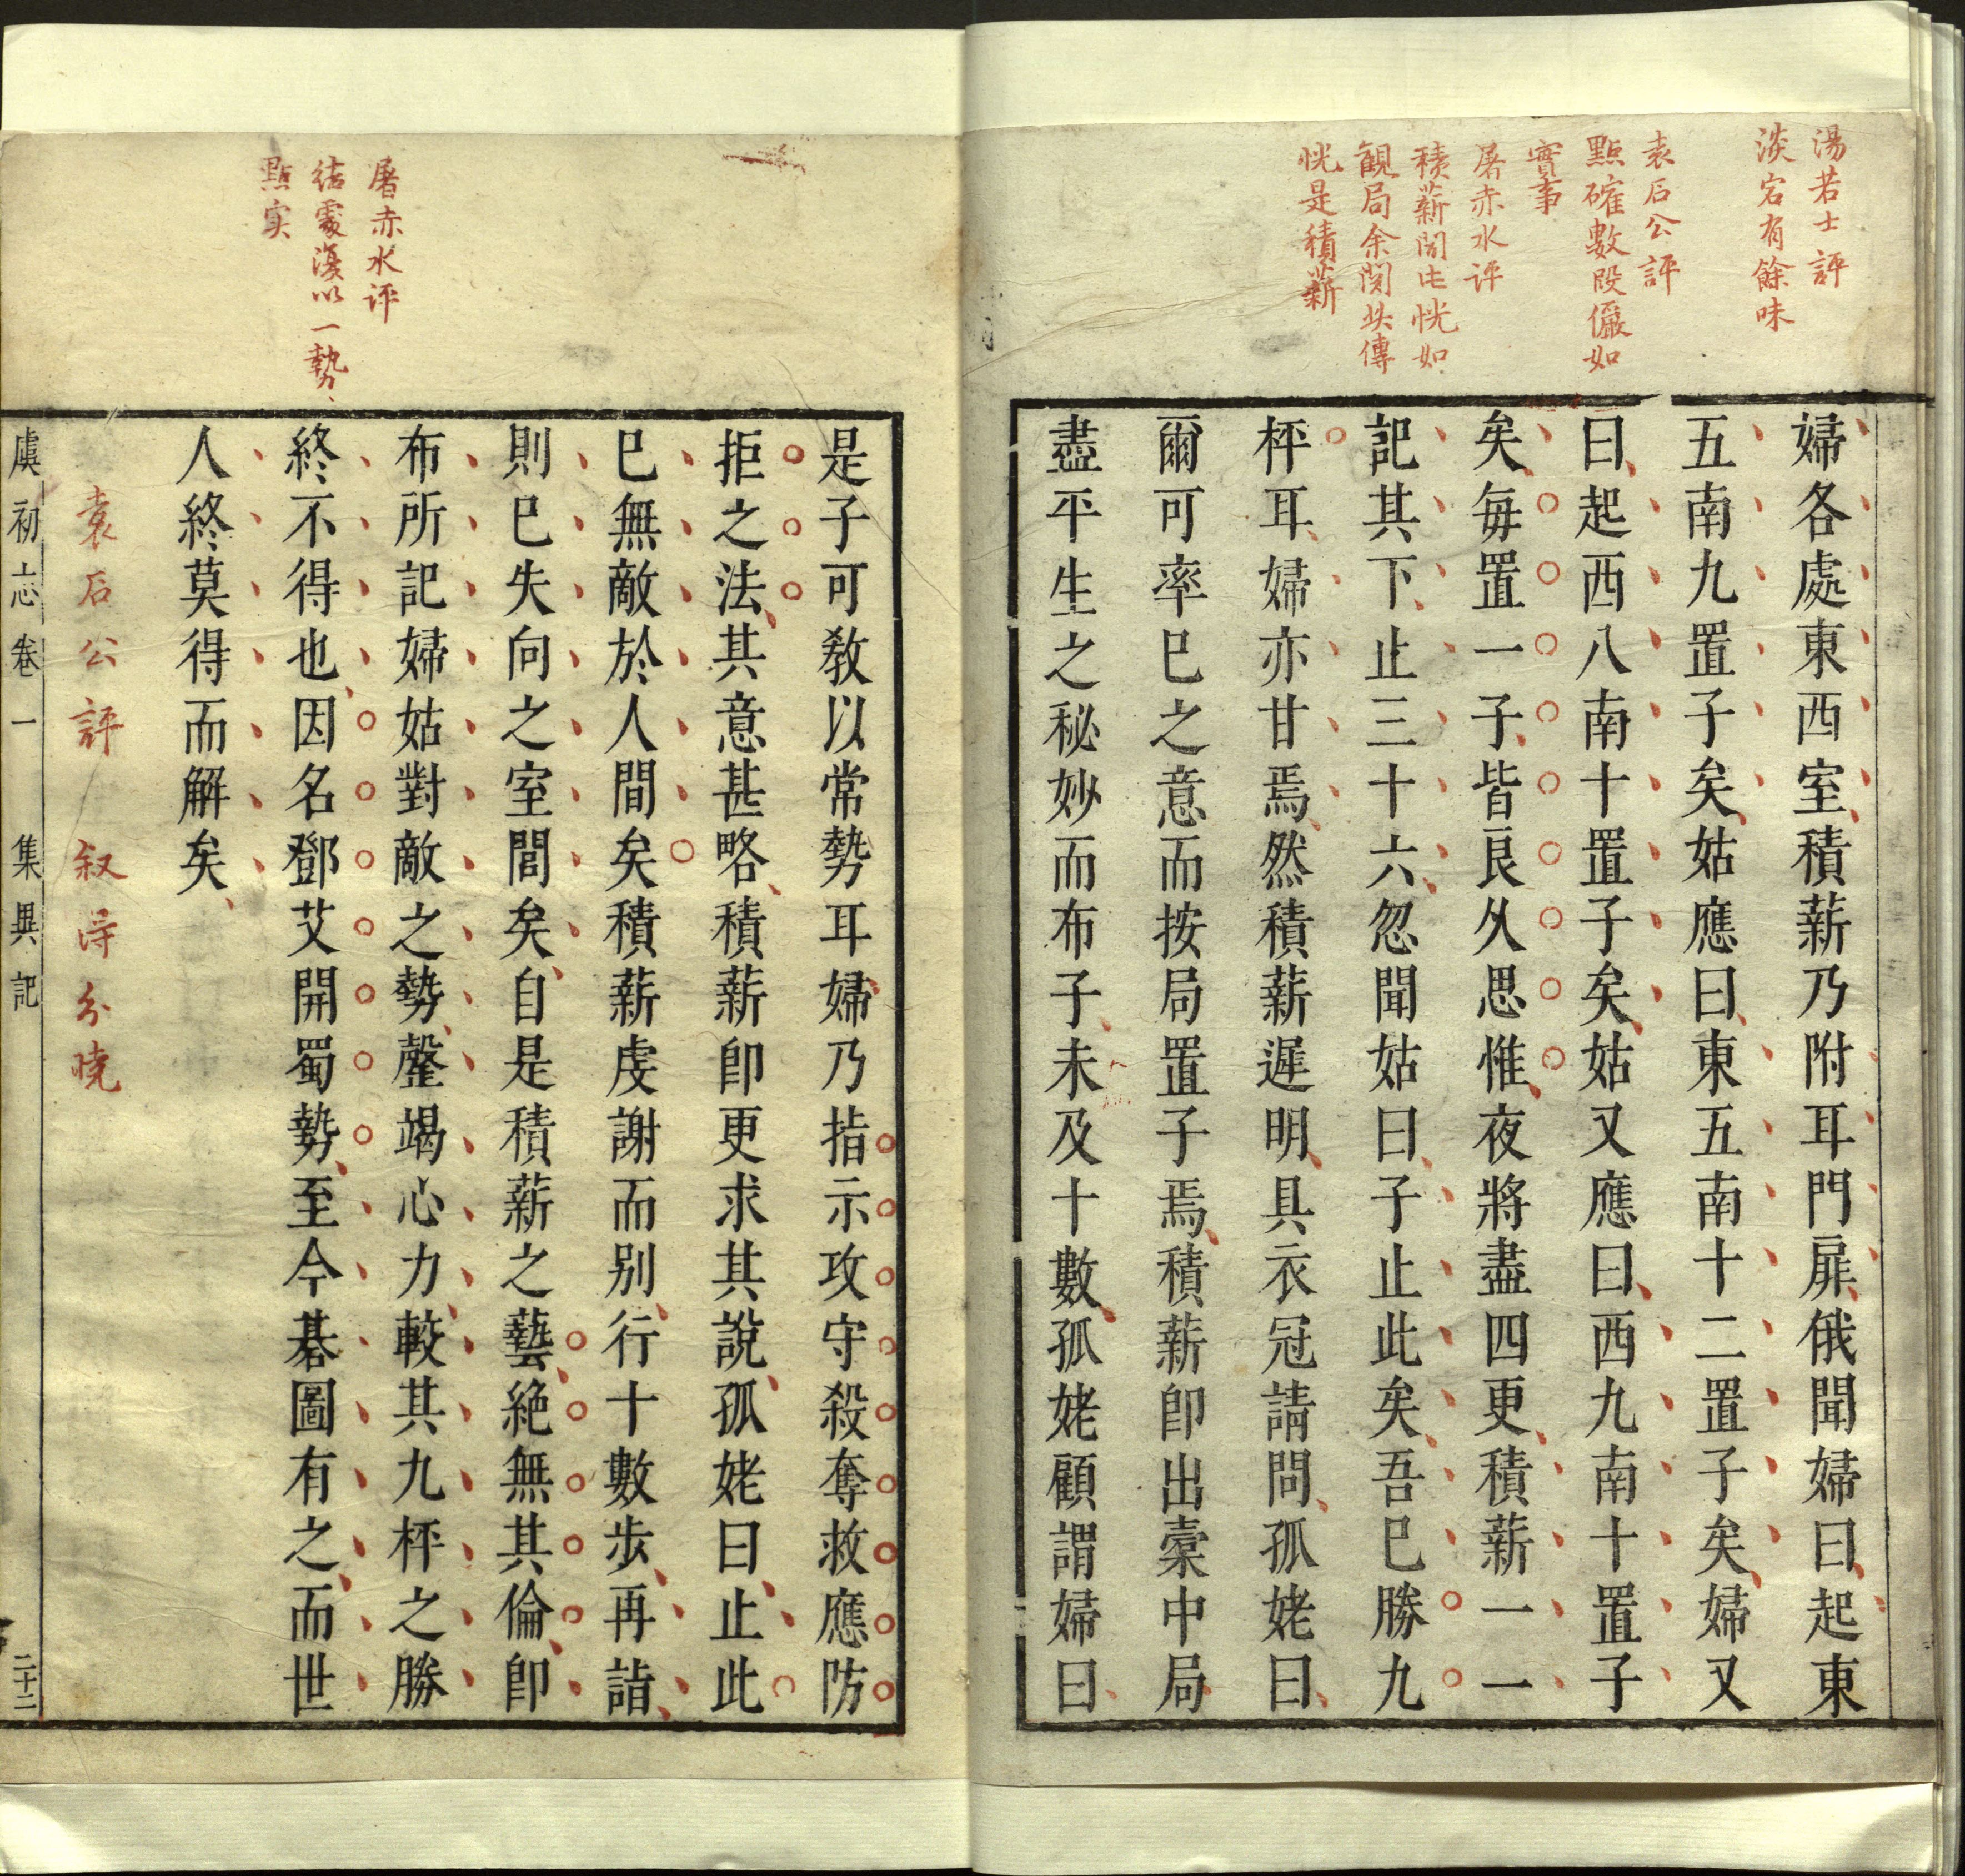 湯若士評
淡宕有餘味
袁石公評
點確數段儼如
實事
屠赤水評
積薪聞此恍如
觀局余閱此傳
恍是積薪
婦各處東西室積薪乃附耳門扉俄聞婦曰起東
五南九置子矣姑應曰東五南十二置子矣婦又
曰起西八南十置子矣姑又應曰西九南十置子
矣每置一子皆良久思惟夜將盡四更積薪一一
記其下止三十六忽聞姑曰子止此矣吾巳勝九
枰耳婦亦甘焉然積薪遲明具衣冠請問孤姥曰
爾可率巳之意而按局置子焉積薪卽出槖中局
盡平生之秘妙而布子未及十數孤姥顧謂婦曰
屠赤水评
结處復以一勢
點实
是子可敎以常勢耳婦乃指示攻守殺奪救應防
拒之法其意甚略積薪卽更求其說孤姥曰止此
巳無敵於人間矣積薪虔謝而别行十數步再詣
則巳失向之室閭矣自是積薪之藝絶無其倫卽
布所記婦姑對敵之勢罄竭心力較其九枰之勝
終不得也因名鄧艾開蜀勢至今棊圖有之而世
人終莫得而解矣
袁石公評 叙得分曉
虞初志卷一 集異記 二十二